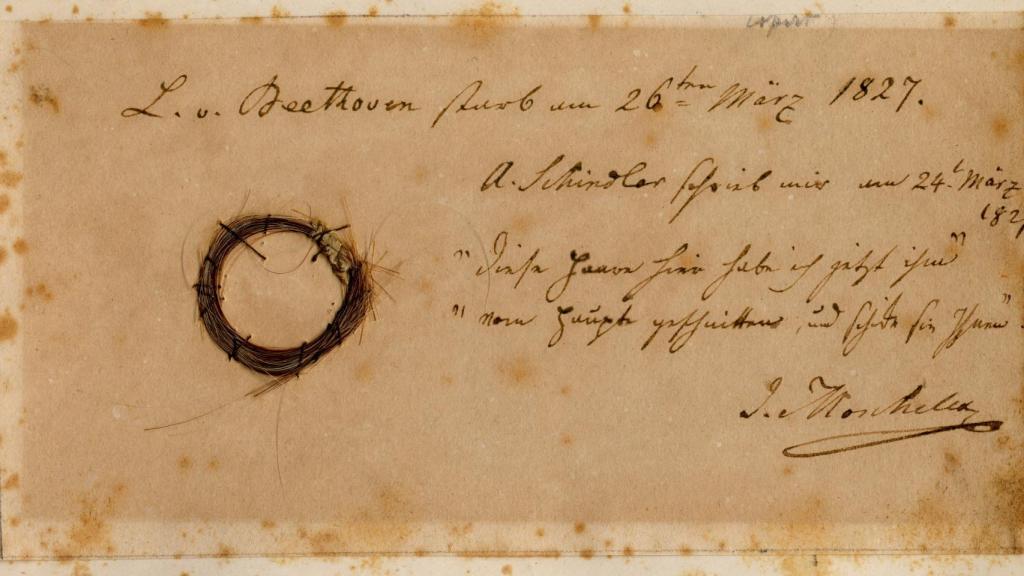 copirt
L. v. Beethoven starb am 26ten März 1827.
A. Schindler schrieb mir am 24t März
182
"Diese Haare hier habe ich jetzt ihm"
"vom Haupte geschnitten, und schicke sie Ihnen".
J. Moscheles